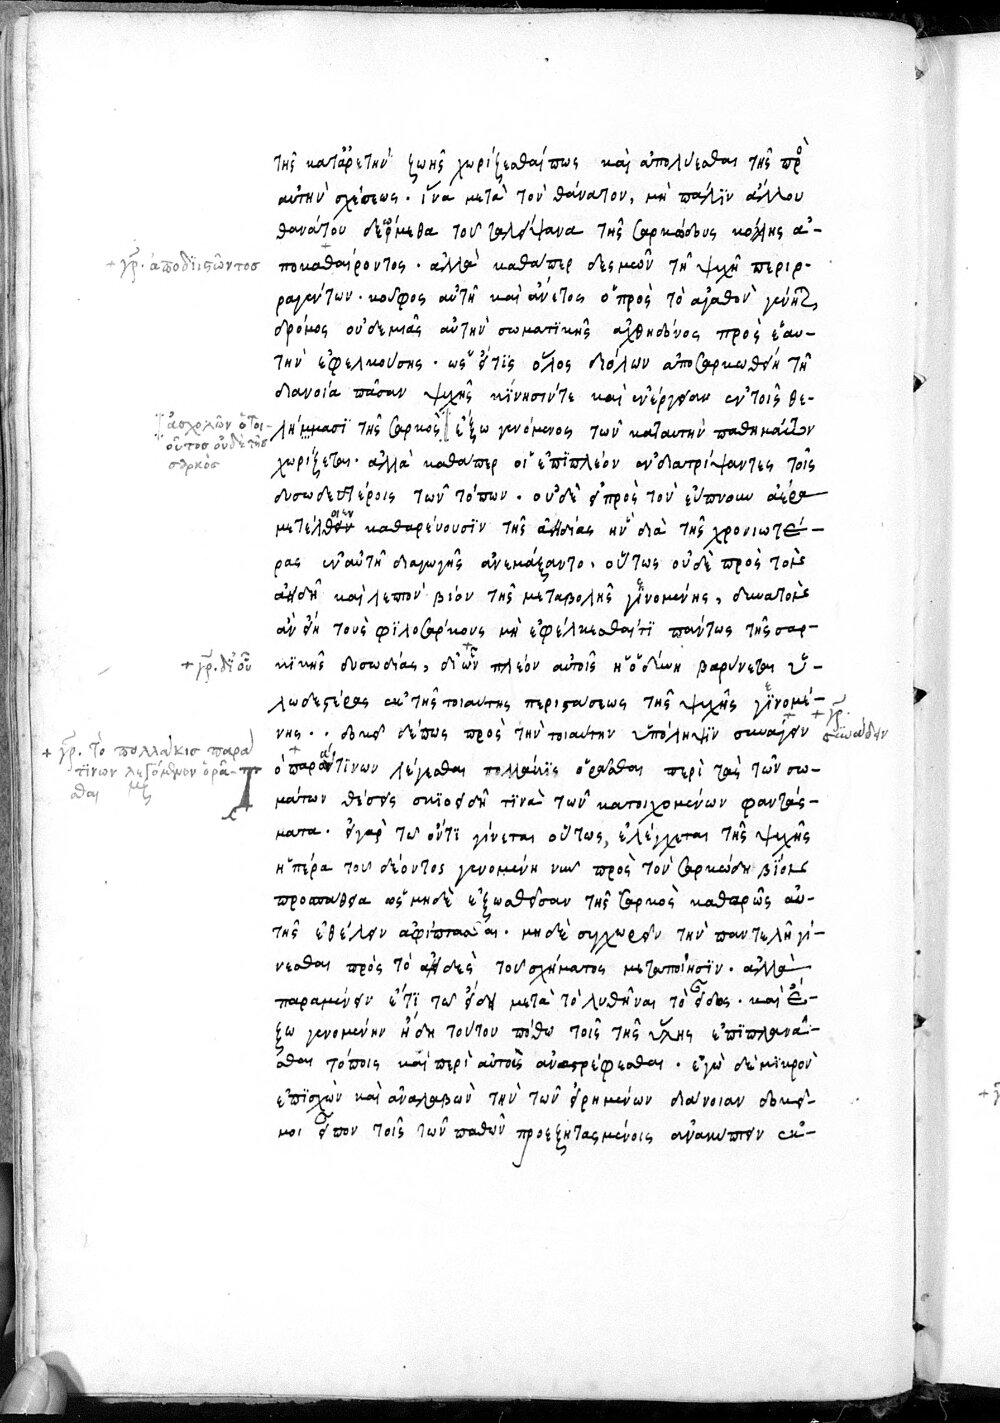 της κατ' ἀρετὴν ζωῆς χωρίζεσθαί πως καὶ ἀπολύεσθαι τῆς πρὸς
αὐτὴν σχέσεως· ἵνα μετὰ τὸν θάνατον, μὴ πάλιν ἄλλου
θανάτου δεώμεθα τοῦ τὰ λείψανα τῆς σαρκώδους κόλλης ἀ-
+ γρ. ἀποδιιστῶντος
ποκαθαίροντος· ἀλλὰ καθάπερ δεσμῶν τῇ ψυχῇ περιρ-
ραγέντων· κοῦφος αὐτῇ καὶ ἄνετος ὁ πρὸς τὸ ἀγαθὸν γένηται
δρόμος οὐδεμιᾶς αὐτὴν σωματικῆς ἀχθηδόνος πρὸς ἑαυ-
τὴν ἐφελκούσης· ὡς εἴ τις ὅλος δι' ὅλων ἀποσαρκωθείη τῇ
διανοία πᾶσαν ψυχῆς κίνησίν τε καὶ ἐνέργειαν ἐν τοῖς θε-
ἀσχολῶν ὁ τοι-
οῦτος οὐδὲ τῆς
σαρκὸς
λήμμασι τῆς σαρκὸς ἔξω γενόμενος τῶν κατ' αὐτὴν παθημάτων
χωρίζεται· ἀλλὰ καθάπερ οἱ ἐπιπλέον ἐνδιατρίψαντες τοῖς
δυσωδεστέροις τῶν τόπων· οὐδὲ εἰ πρὸς τὸν εὔπνουν ἀέρα
μετέλθοιεν καθαρεύουσιν τῆς ἀηδίας ἣν διὰ τῆς χρονιωτέ-
ρας ἐν αὐτῇ διαγωγῆς ἀνεμάξαντο· οὕτως οὐδὲ πρὸς τὸν
ἀειδῆ καὶ λεπτὸν βίον τῆς μεταβολῆς γινομένης, δυνατὸν
ἂν εἴη τοὺς φιλοσάρκους μὴ ἐφέλκεσθαί τι πάντως τῆς σαρ-
+ γρ. δι' οὗ
κικῆς δυσωδίας, δι' ὧν πλέον αὐτοῖς ἡ ὀδύνη βαρύνεται ὑ-
λωδεστέρας ἐκ τῆς τοιαύτης περιστάσεως τῆς ψυχῆς γινομέ-
+ γρ.
συνάδειν
νης· δοκεῖ δέ πως πρὸς τὴν τοιαύτην ὑπόληψιν συνάγειν
+ γρ. τὸ πολλάκις παρά
τινων λεγόμενον ὁρᾶ-
σθαι
ὁ παρά τινων λέγεσθαι πολλάκις ὁρᾶσθαι περὶ τὰς τῶν σω-
μάτων θέσεις σκιοειδῆ τινὰ τῶν κατοιχομένων φαντάς-
ματα· εἰ γὰρ τῷ ὄντι γίνεται οὕτως, ἐλέγχεται τῆς ψυχῆς
ἡ πέρα τοῦ δέοντος γενομένη νῦν πρὸς τὸν σαρκώδη βίον
προσπάθεια ὡς μηδὲ ἐξωσθεῖσαν τῆς σαρκὸς καθαρῶς αὐ-
τῆς ἐθέλειν ἀφίπτασθαι· μηδὲ συγχωρεῖν τὴν παντελῆ γί-
νεσθαι πρὸς τὸ ἀειδὲς τοῦ σχήματος μεταποίησιν· ἀλλὰ
παραμένειν ἔτι τῷ εἴδει μετὰ τὸ λυθῆναι τὸ εἶδος· καὶ ἔ-
ξω γενομένην ἤδη τούτου πόθω τοῖς τῆς ὕλης ἐπιπλανᾶ-
σθαι τόποις καὶ περὶ αὐτοὺς ἀναστρέφεσθαι· ἐγὼ δὲ μικρὸν
ἐπισχὼν καὶ ἀναλαβὼν τὴν τῶν εἰρημένων διάνοιαν δοκεῖ
μοι εἶπον τοῖς τῶν παθῶν προεξητασμένοις ἀνακύπτειν ἐκ-